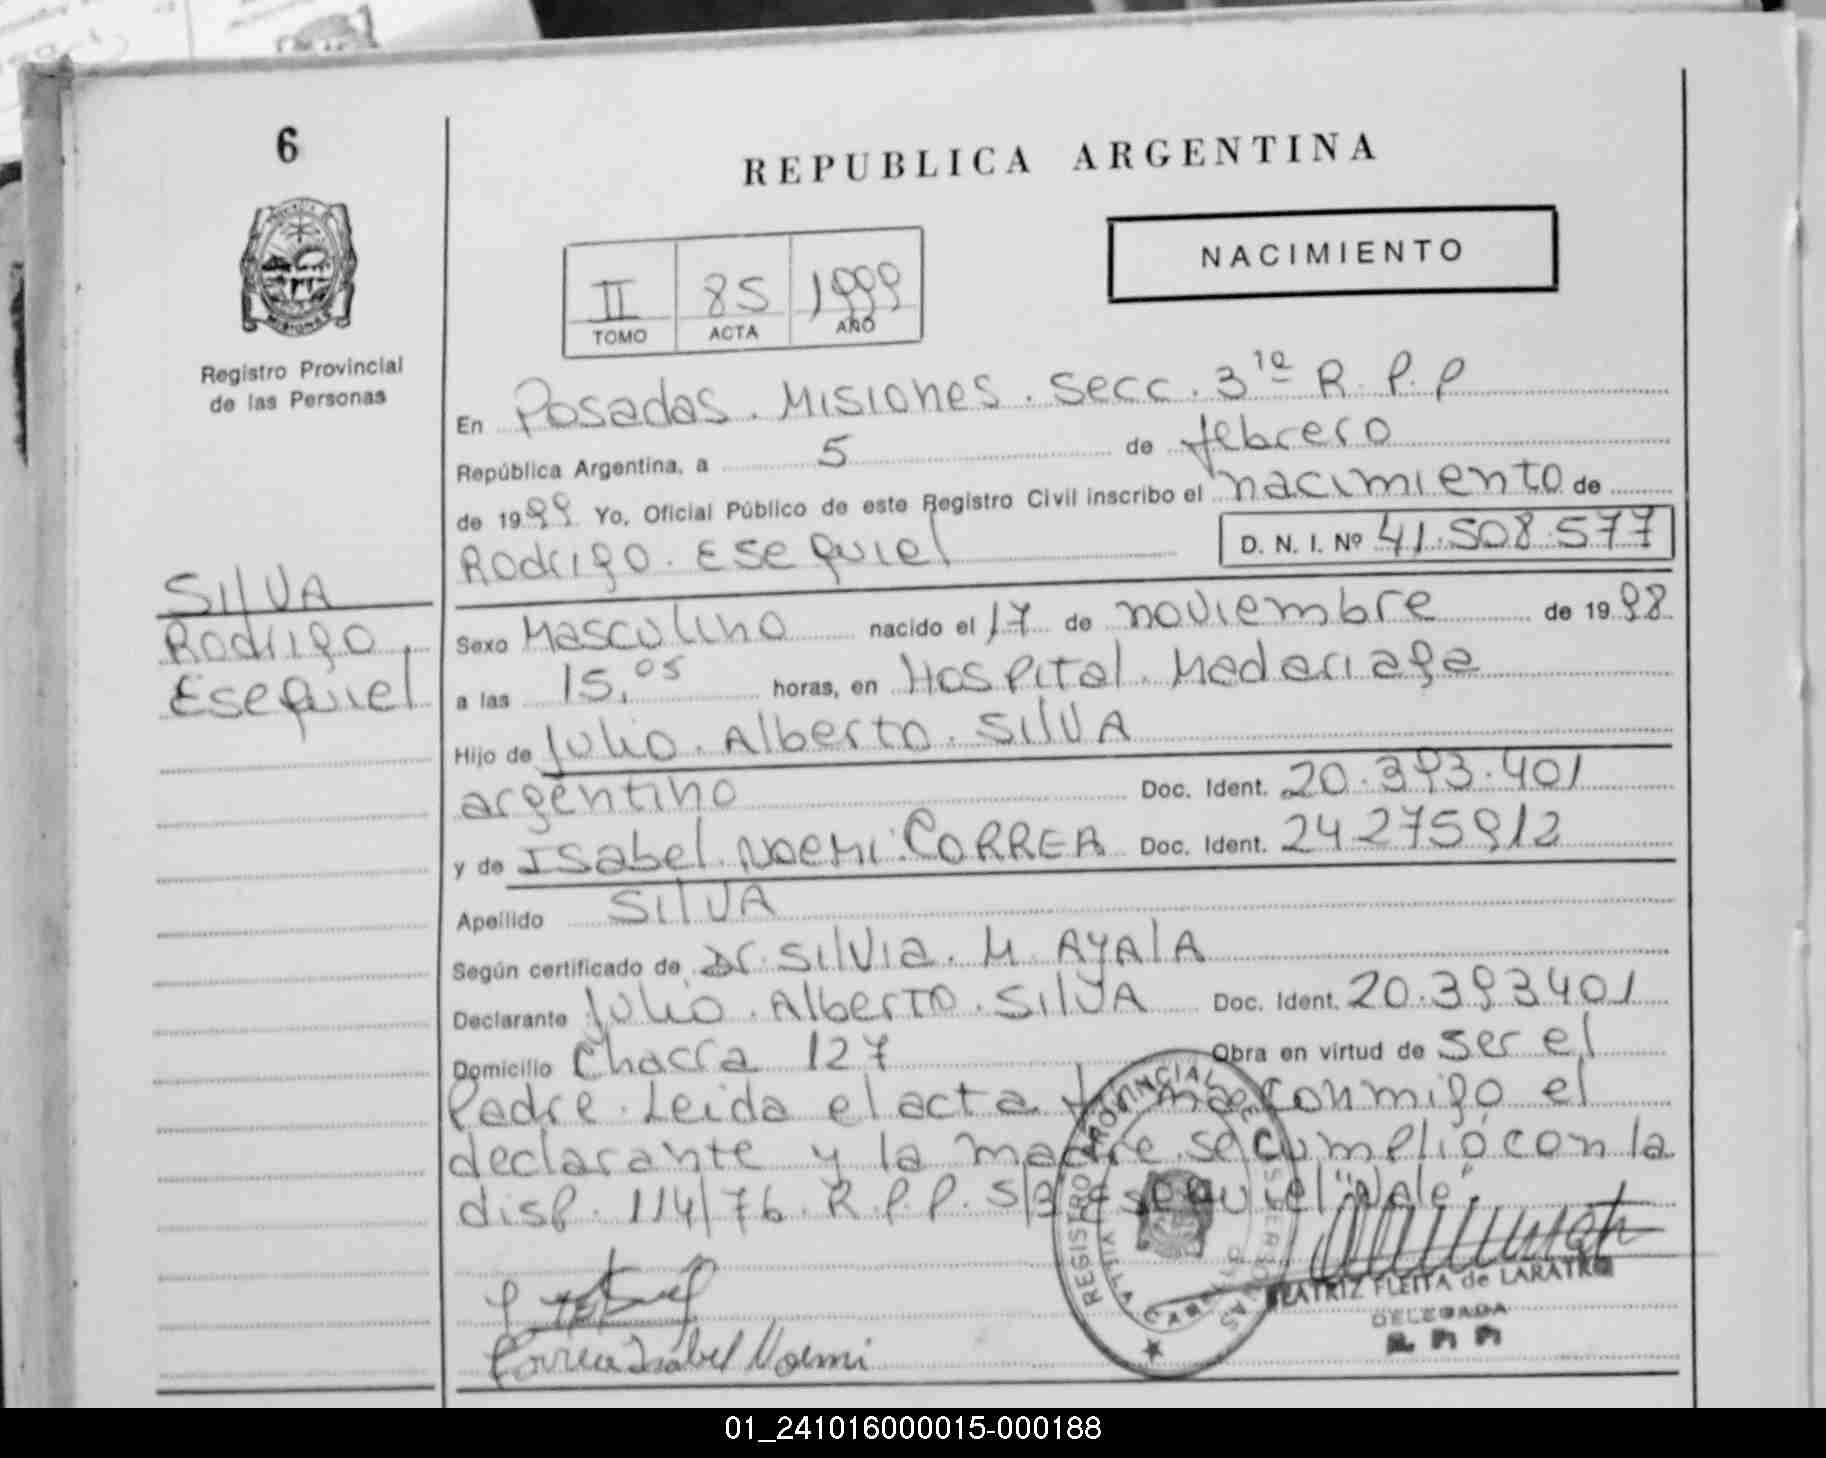 6
REPUBLICA ARGENTINA
NACIMIENTO
II 85 1999
TOMO ACTA AÑO
Registro Provincial
de las Personas
En Posadas. Misiones. Secc. 3ra R.P.P
República Argentina, a 5 de febrero
de 1999 Yo, Oficial Público de este Registro Civil inscribo el nacimiento de
Rodrigo. Esequiel D. N. I. Nº 41.508.577
SilVA
Rodrigo
Esequiel
Sexo Masculino nacido el 17 de noviembre de 1998
a las 15,05 horas, en Hospital. Madariaga
Hijo de Julio. Alberto. SilVA
argentino Doc. Ident. 20.393.401
y de Isabel. Noemi. CORREA Doc. Ident. 24275912
Apellido SilVA
Según certificado de Dr. Silvia. M. AyAlA
Declarante Julio. Alberto. SilVA Doc. Ident. 20.393401
Domicilio Chacra 127 Obra en virtud de ser el
Padre. Leida el acta firma conmigo el
declarante y la madre. se cumplió con la
disp. 114/76. R.P.P. S/B Esequiel "Vale".
REGISTRO PROVINCIAL DE LAS PERSONAS
Correa Isabel Noemi
BEATRIZ FLEITA de LARATRO
DELEGADA
01_241016000015-000188